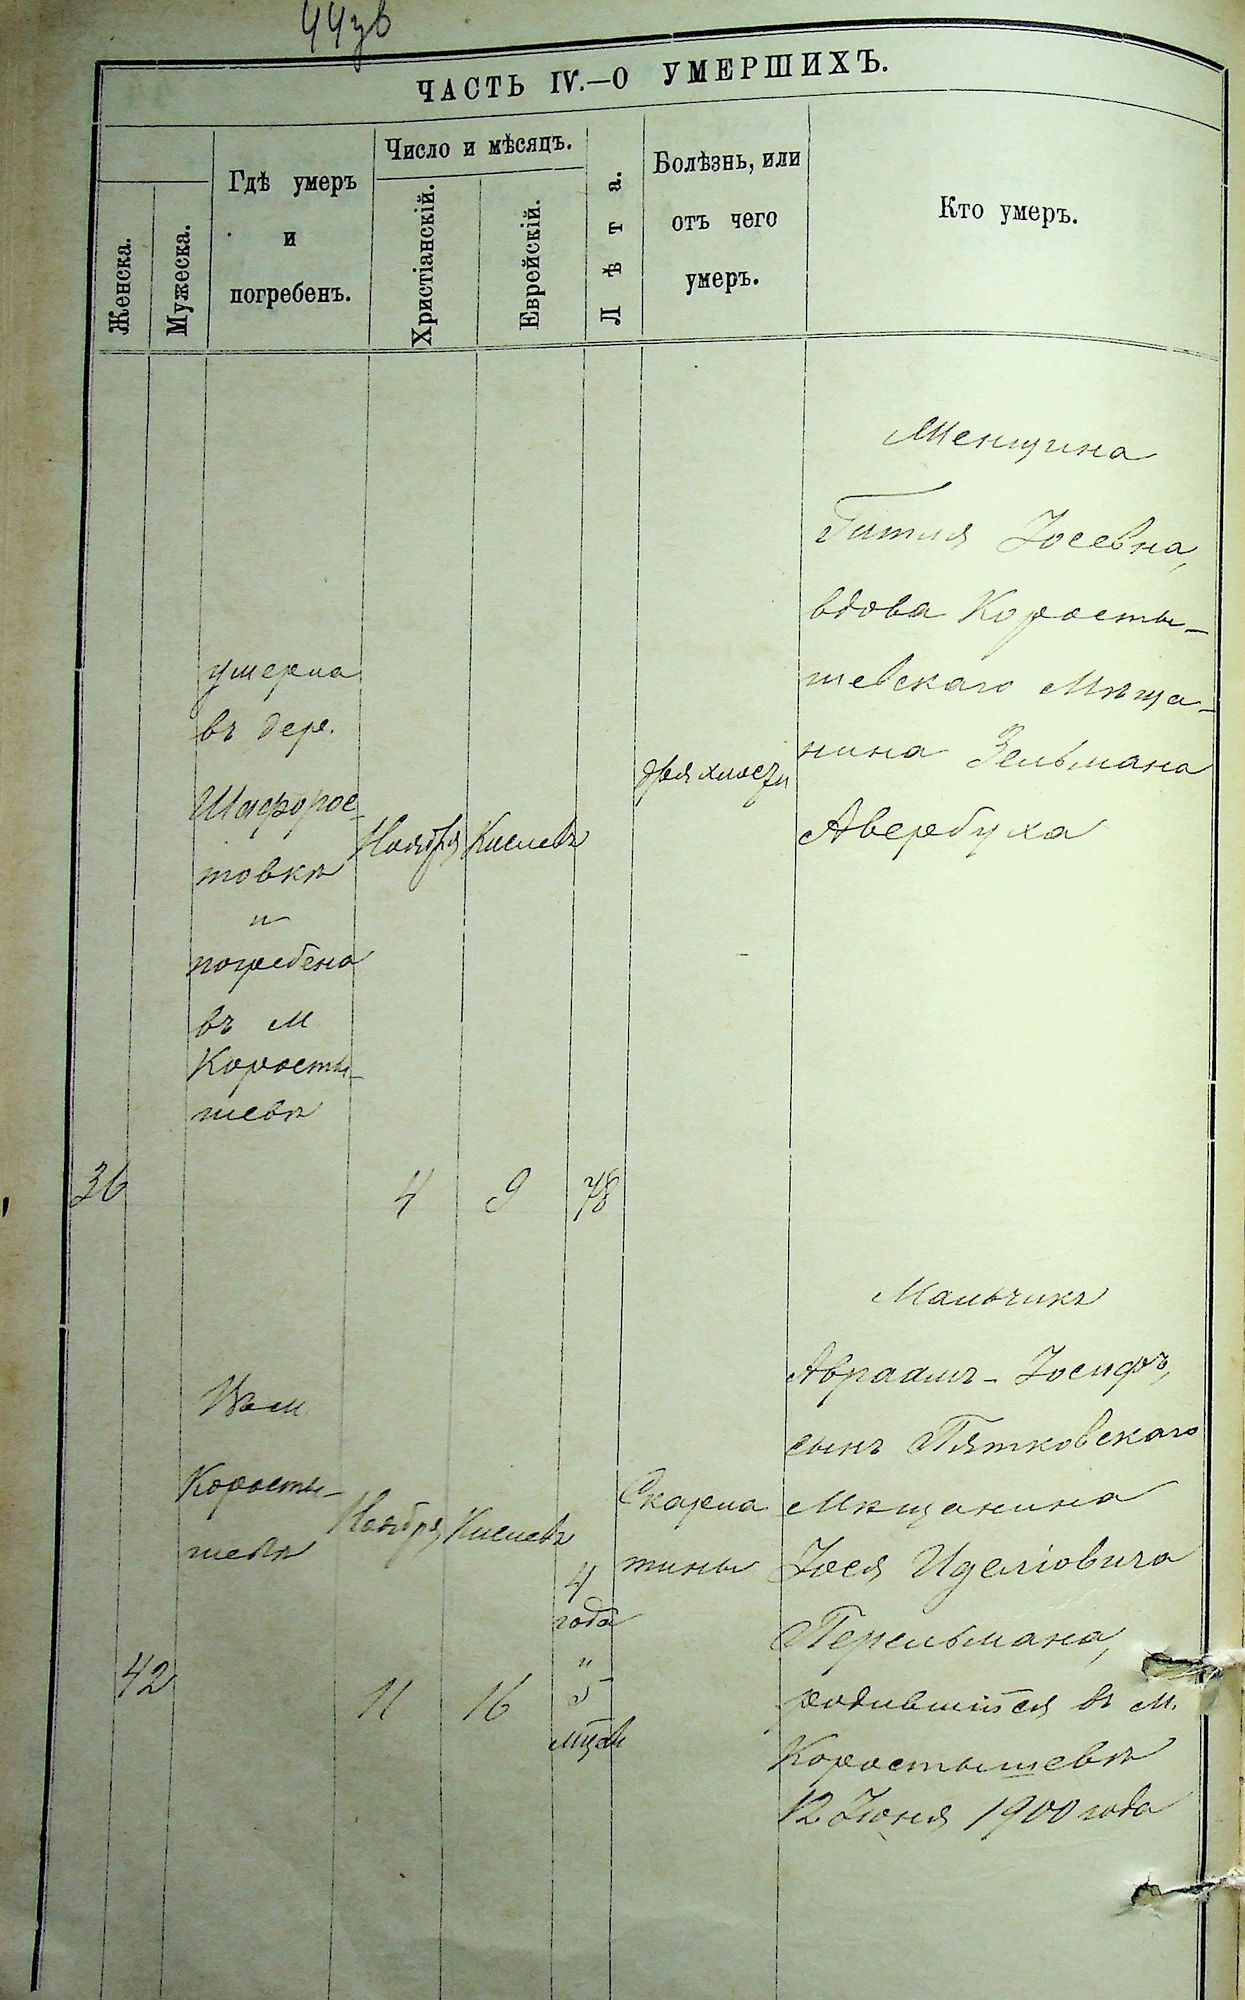 44зв
ЧАСТЬ IV.—О УМЕРШИХЪ.
Женска.
Мужеска.
Гдѣ умеръ
и
погребенъ.
Число и мѣсяцъ.
Христіанскій.
Еврейскій.
Лѣта.
Болѣзнь, или
отъ чего
умеръ.
Кто умеръ.
36
умерла
въ дере.
товкѣ
и
погребена
въ М
Коросты-
шевѣ
Ноября
4
Кислевъ
9
78
дряхлости
Женщина
Гитля Іосевна,
вдова Коросты-
шевскаго Мѣща-
нина Зельмана
Авербуха
42
Въ м
Коросты-
шевѣ
Ноября
11
Кислевъ
16
4
года
"
5
мцев
Скарла
тины
Мальчикъ
Авраамъ-Іосифъ,
сынъ Пятковскаго
Мѣщанина
Іося Иделіовича
Перельмана,
родившійся въ м.
Коростышевѣ
12 Іюня 1900 года